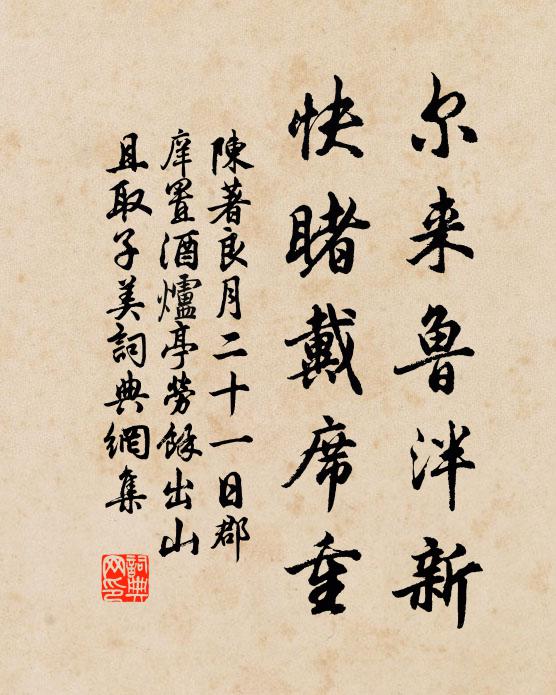 尔来鲁泮新
快睹戴席重
陳著良月二十一日郡
庠置酒爐亭勞餘出山
且取子美詞典網集
詞典
网印